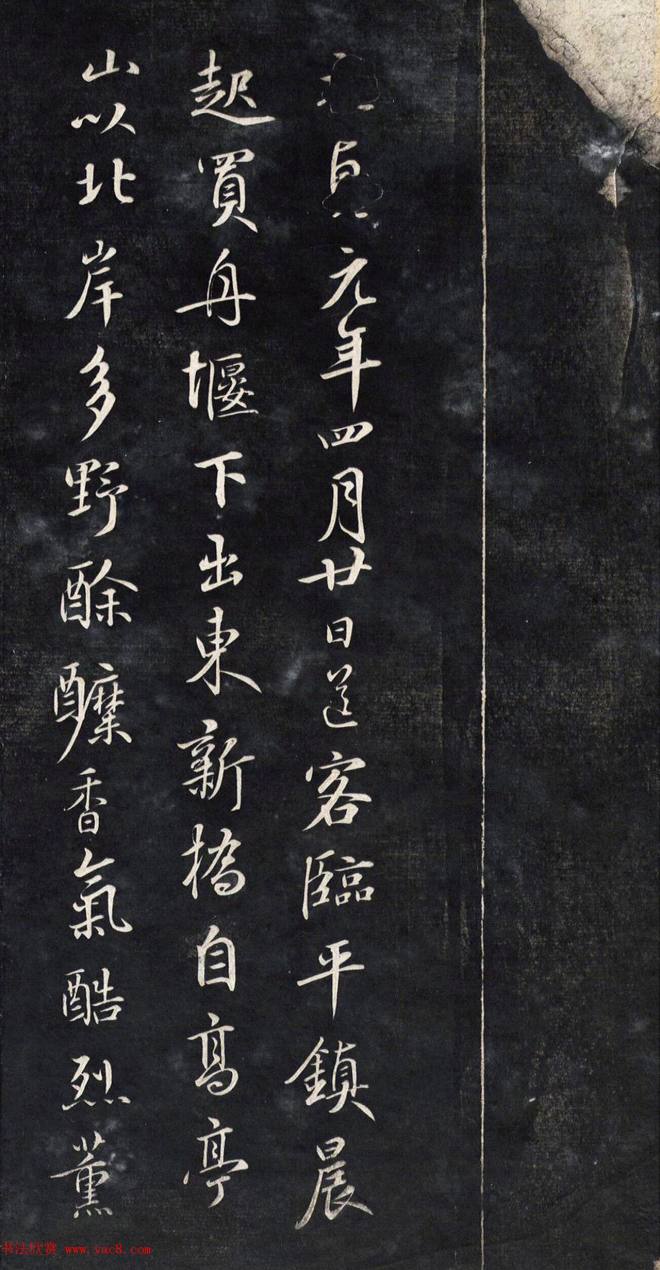 貞元年四月廿日送客臨平鎮晨
起買舟堰下出東新橋自高亭
山以北岸多野酴醾香氣酷烈薰
书法欣赏 www.yac8.com